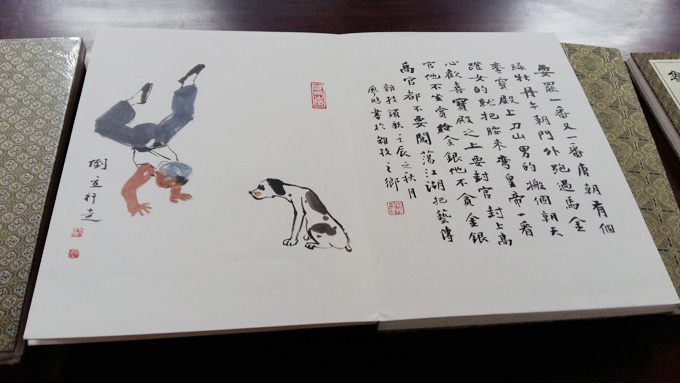 耍罷一番又一番唐朝有個
綠牡丹午朝門外跑過馬金
鑾寶殿上刀山男的搬個朝天
蹬女的就把腰來彎皇帝一看
心歡喜寶殿之上要封官封上高
官他不坐賞給金銀他不貪金銀
為官都不要闖蕩江湖把藝傳
雜技謠歌壬辰之秋月
書於雜技之鄉
倒立行走